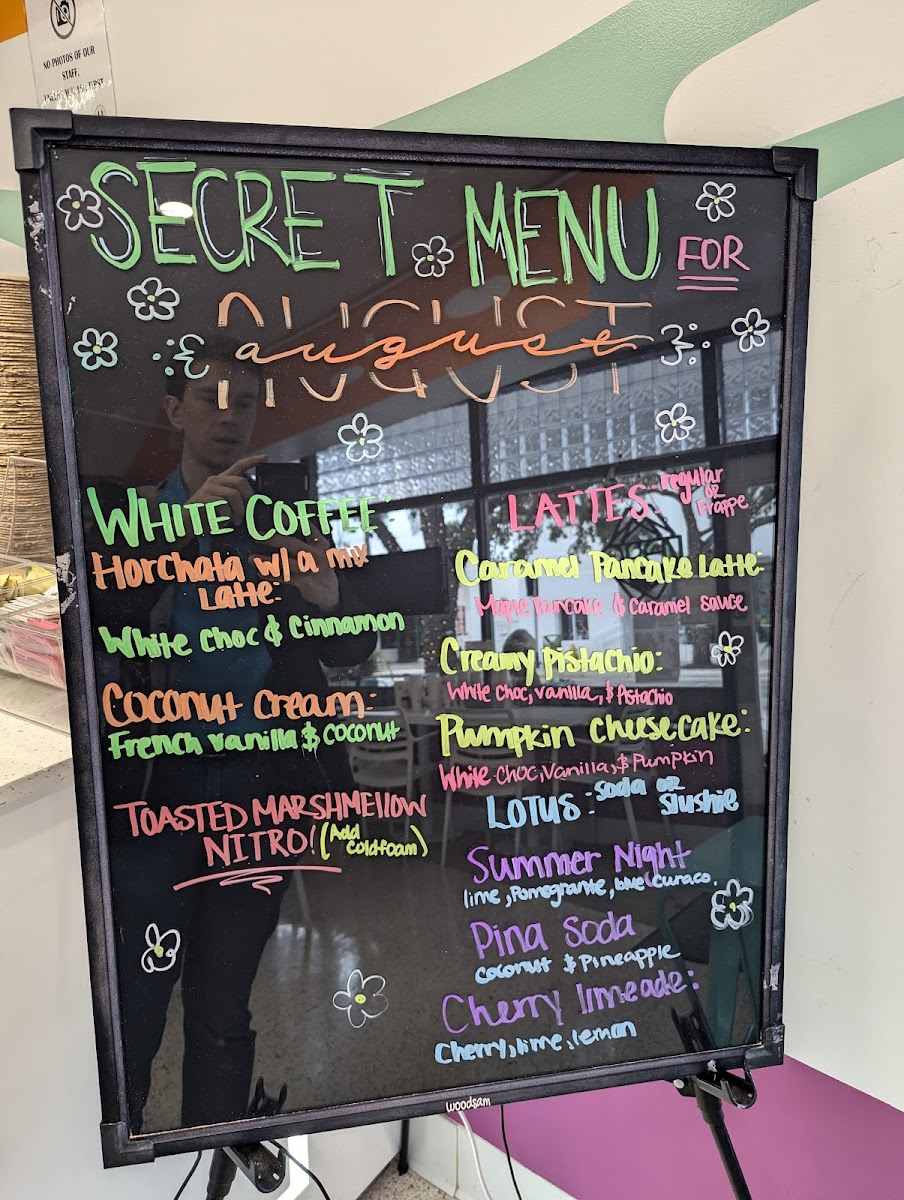 NO PHOTOS OF OUR
STAFF,
SECRET MENU FOR
AUGUST
august
WHITE COFFEE:
Horchata w/ a mx
Latte:
White choc & cinnamon
Coconut cream:
French vanilla & coconut
TOASTED MARSHMELLOW
NITRO! (Add
coldfoam)
LATTES: regular
or
Frappe
Caramel Pancake Latte:
Maple Pancake & Caramel sauce
Creamy pistachio:
White choc, vanilla, & Pistachio
Pumpkin cheesecake:
White choc, Vanilla, & Pumpkin
LOTUS: soda or
slushie
Summer Night
lime, Pomegrante, blue curaco.
Pina Soda
coconut & Pineapple
Cherry limeade:
Cherry, lime, lemon
woodsam